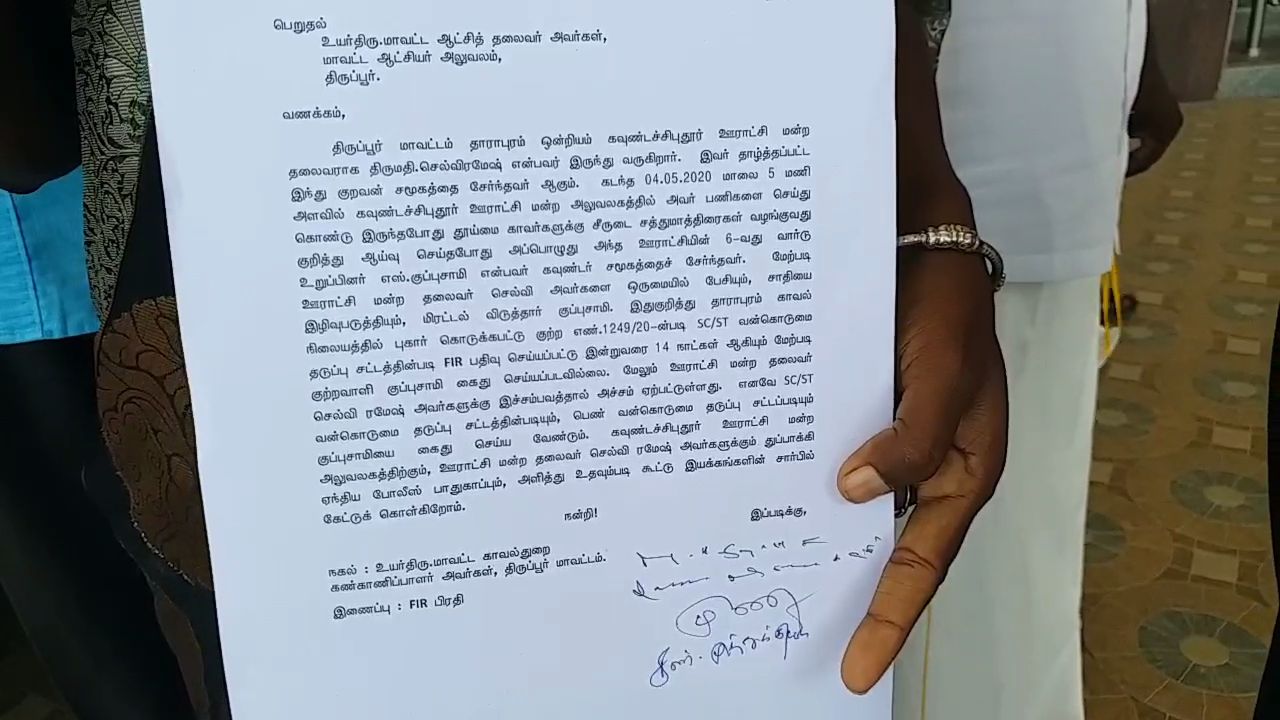 பெறுதல்
உயர்திரு.மாவட்ட ஆட்சித் தலைவர் அவர்கள்,
மாவட்ட ஆட்சியர் அலுவலம்,
திருப்பூர்.
வணக்கம்,
திருப்பூர் மாவட்டம் தாராபுரம் ஒன்றியம் கவுண்டச்சிபுதூர் ஊராட்சி மன்ற
தலைவராக திருமதி.செல்விரமேஷ் என்பவர் இருந்து வருகிறார். இவர் தாழ்த்தப்பட்ட
இந்து குறவன் சமூகத்தை சேர்ந்தவர் ஆகும். கடந்த 04.05.2020 மாலை 5 மணி
அளவில் கவுண்டச்சிபுதூர் ஊராட்சி மன்ற அலுவலகத்தில் அவர் பணிகளை செய்து
கொண்டு இருந்தபோது தூய்மை காவர்களுக்கு சீருடை சத்துமாத்திரைகள் வழங்குவது
குறித்து ஆய்வு செய்தபோது அப்பொழுது அந்த ஊராட்சியின் 6-வது வார்டு
உறுப்பினர் எஸ்.குப்புசாமி என்பவர் கவுண்டர் சமூகத்தைச் சேர்ந்தவர். மேற்படி
ஊராட்சி மன்ற தலைவர் செல்வி அவர்களை ஒருமையில் பேசியும், சாதியை
இழிவுபடுத்தியும், மிரட்டல் விடுத்தார் குப்புசாமி. இதுகுறித்து தாராபுரம் காவல்
நிலையத்தில் புகார் கொடுக்கபட்டு குற்ற எண்.1249/20-ன்படி SC/ST வன்கொடுமை
தடுப்பு சட்டத்தின்படி FIR பதிவு செய்யப்பட்டு இன்றுவரை 14 நாட்கள் ஆகியும் மேற்படி
குற்றவாளி குப்புசாமி கைது செய்யப்படவில்லை. மேலும் ஊராட்சி மன்ற தலைவர்
செல்வி ரமேஷ் அவர்களுக்கு இச்சம்பவத்தால் அச்சம் ஏற்பட்டுள்ளது. எனவே SC/ST
வன்கொடுமை தடுப்பு சட்டத்தின்படியும், பெண் வன்கொடுமை தடுப்பு சட்டப்படியும்
குப்புசாமியை கைது செய்ய வேண்டும். கவுண்டச்சிபுதூர் ஊராட்சி மன்ற
அலுவலகத்திற்கும், ஊராட்சி மன்ற தலைவர் செல்வி ரமேஷ் அவர்களுக்கும் துப்பாக்கி
ஏந்திய போலீஸ் பாதுகாப்பும், அளித்து உதவும்படி கூட்டு இயக்கங்களின் சார்பில்
கேட்டுக் கொள்கிறோம்.
நன்றி! இப்படிக்கு,
நகல் : உயர்திரு.மாவட்ட காவல்துறை
கண்காணிப்பாளர் அவர்கள், திருப்பூர் மாவட்டம்.
இணைப்பு : FIR பிரதி